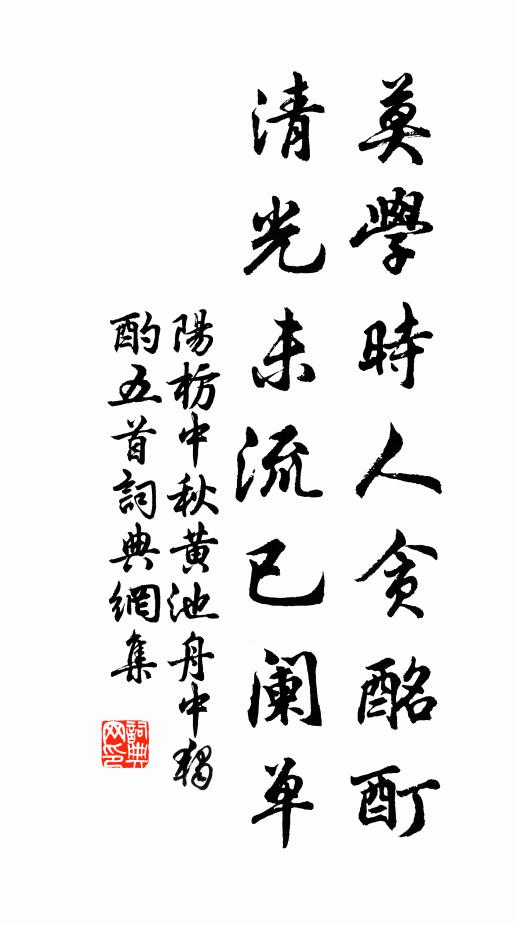 莫學時人貪酩酊
清光未流已阑单
陽枋中秋黄池舟中獨
酌五首詞典網集
詞典
网印